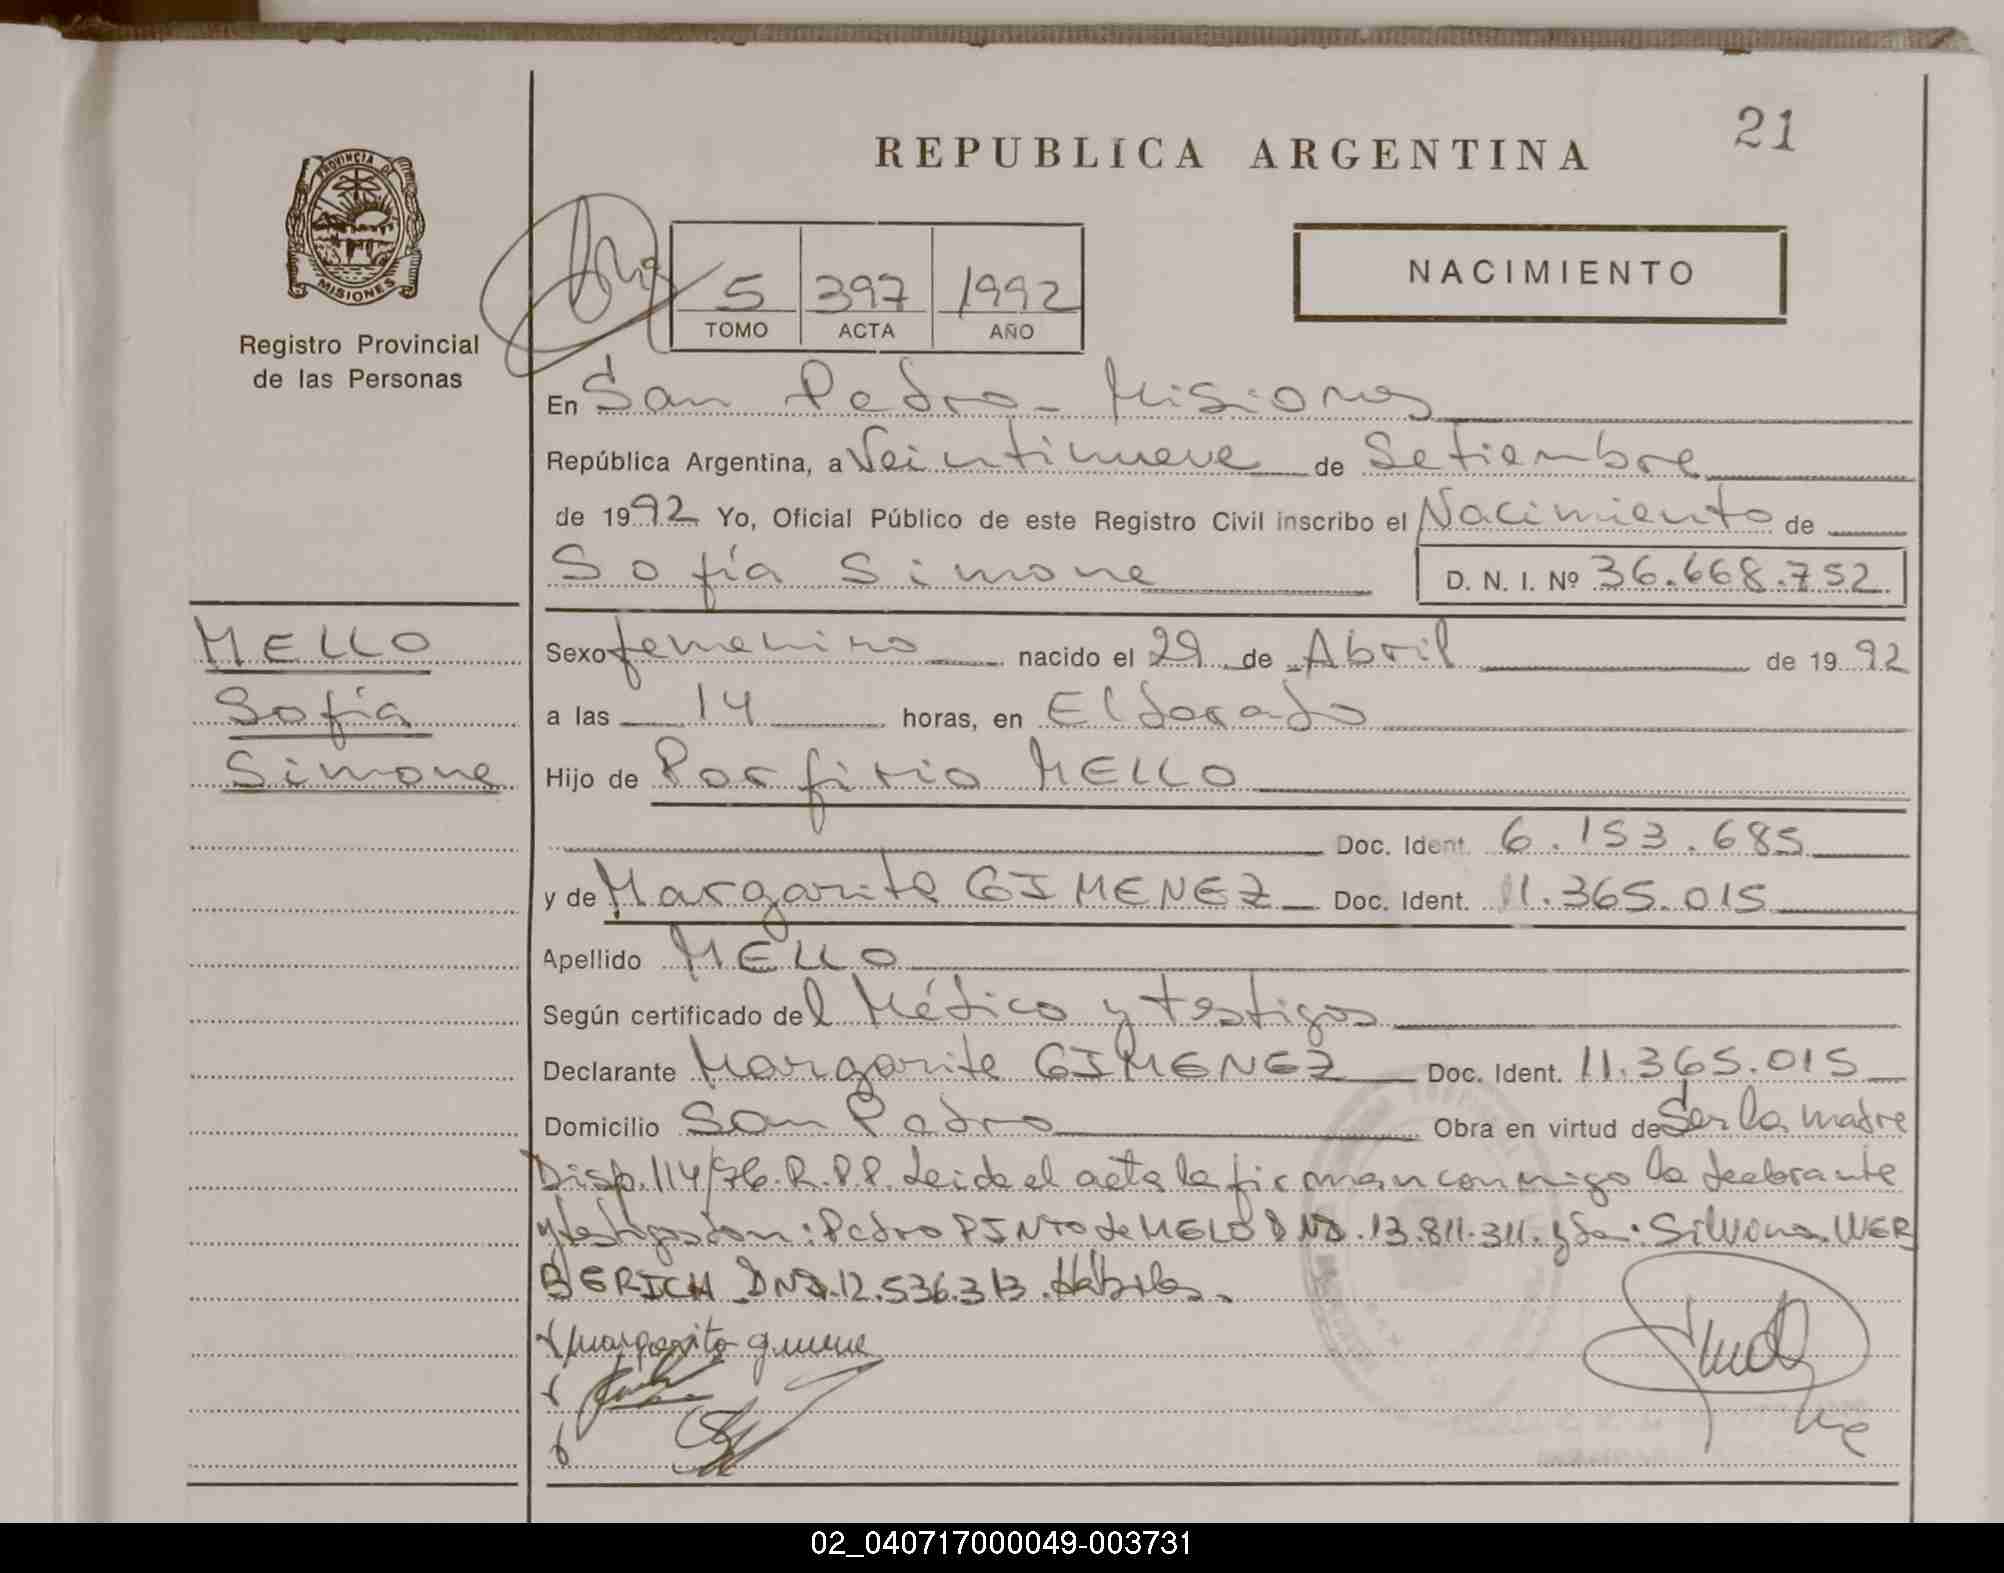 21
REPUBLICA ARGENTINA
PROVINCIA DE
MISIONES
Registro Provincial
de las Personas
5 397 1992
TOMO ACTA AÑO
NACIMIENTO
En San Pedro - Misiones
República Argentina, a Veintinueve de Setiembre
de 1992 Yo, Oficial Público de este Registro Civil inscribo el Nacimiento de
Sofía Simone
D. N. I. Nº 36.668.752
MELLO
Sofía
Simone
Sexo femenino nacido el 29 de Abril de 1992
a las 14 horas, en Eldorado
Hijo de Porfirio MELLO
Doc. Ident. 6.153.685
y de Margarita GIMENEZ Doc. Ident. 11.365.015
Apellido MELLO
Según certificado del Médico y testigos
Declarante Margarita GIMENEZ Doc. Ident. 11.365.015
Domicilio San Pedro Obra en virtud de Ser la madre
Disp. 114/76. R.P.P. Leida el acta la firman conmigo la declarante
y testigos Don: Pedro PINTO de MELO DNI. 13.811.311. y Da: Silvina WER
BERICH DNI. 12.536.313. Hábiles.
Margarita
02_040717000049-003731